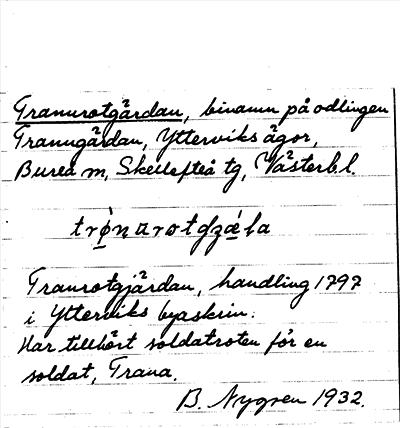 Tranurotgärdan, binamn på odlingen
Tranugärdan, Ytterviks ägor,
Bureå m, Skellefteå tg, Västerb.l.
Tranrotgjärdan, handling 1797
i Ytterviks byaskrin.
Har tillhört soldatroten för en
soldat, Trana.
B. Nygren 1932.